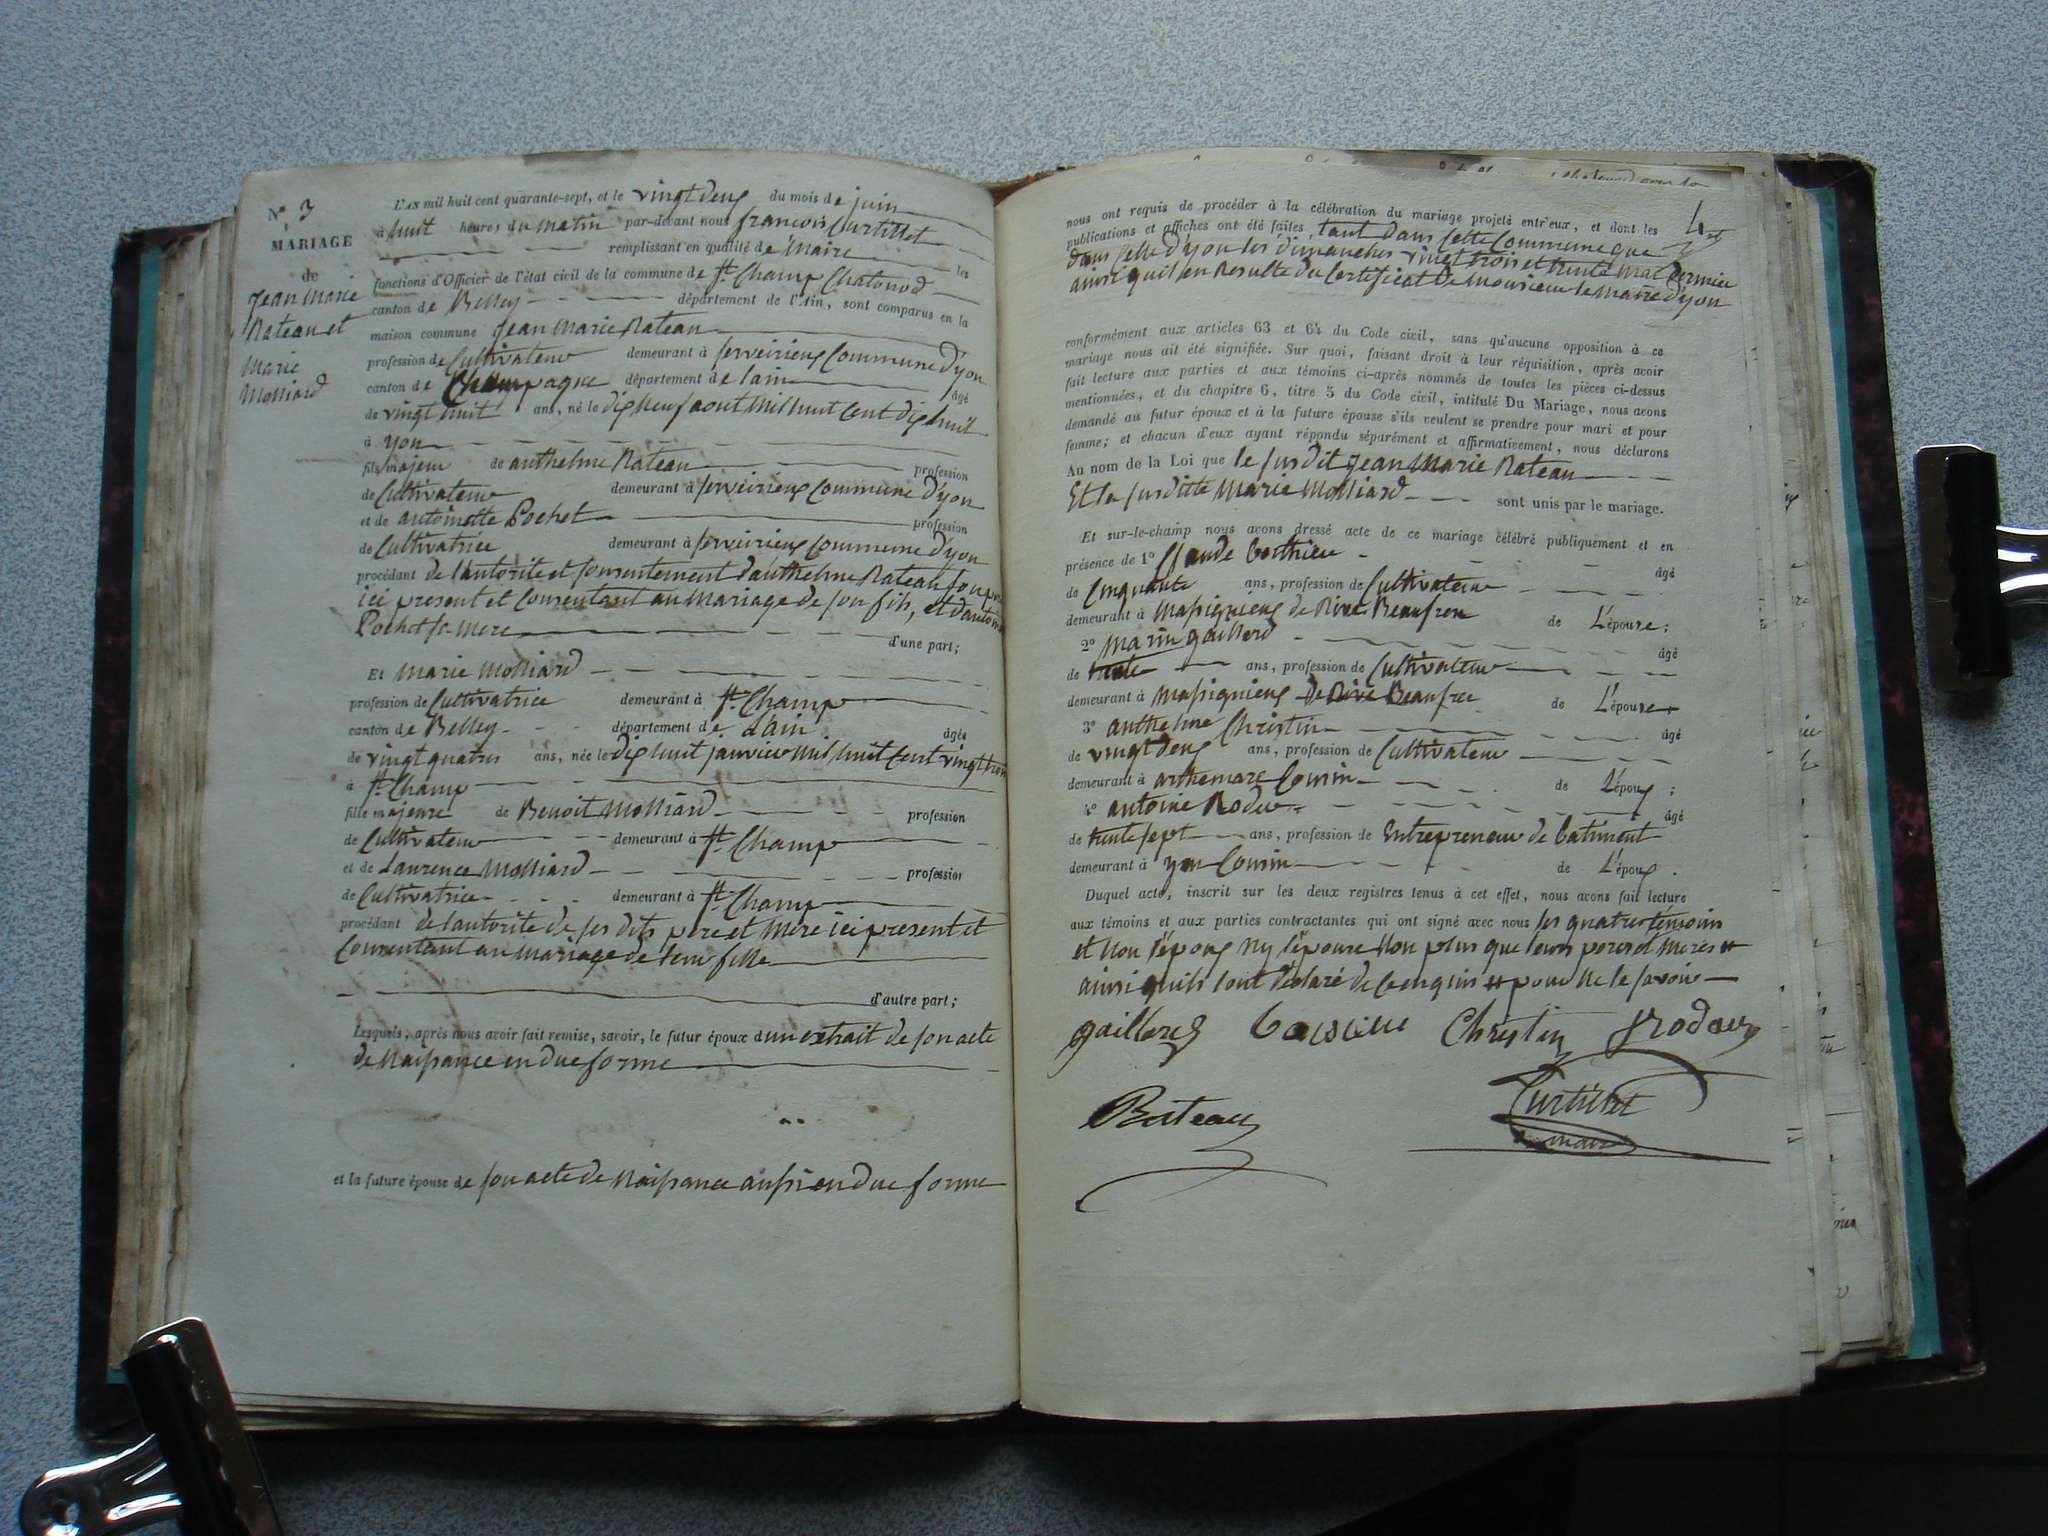 N° 3
MARIAGE
de
Jean Marie
Rateau et
Marie
Molliard
L'AN mil huit cent quarante-sept, et le vingt deux du mois de juin
à huit heures du matin par-devant nous françois Curtillet
remplissant en qualité de Maire les
fonctions d'Officier de l'état civil de la commune de St. Champ Chatonod
canton de Belley département de l'Ain, sont comparus en la
maison commune Jean Marie Rateau
profession de Cultivateur demeurant à Serveirieux Commune d'yon
canton de Champagne département de lain âgé
de vingt huit ans, né le dix neuf aout mil huit Cent dix huit
à yon
fils majeur de anthelme Rateau profession
de Cultivateur demeurant à Serveirieux Commune d'yon
et de antoinette Pochet profession
de Cultivatrice demeurant à Serveirieux Commune d'yon
procédant de lautorité et Consentement danthelme Rateau son
ici present et Consentant au Mariage de son fils, et
Pochet sa Mere d'une part;
Et Marie Molliard
profession de Cultivatrice demeurant à St. Champ
canton de Belley département de Lain âgée
de vingt quatres ans, née le dix huit janvier mil huit Cent vingt trois
à St. Champ
fille majeure de Benoit Molliard profession
de Cultivateur demeurant à St. Champ
et de Laurence Molliard profession
de Cultivatrice demeurant à St. Champ
procédant de lautorité de ses dits pere et Mere ici present et
Consentant au Mariage de leur fille
d'autre part;
Lesquels, après nous avoir fait remise, savoir, le futur époux d'un extrait de son acte
de Naissance en due forme
et la future épouse de son acte de Naissance aussi en due forme
nous ont requis de procéder à la célébration du mariage projeté entr'eux, et dont les
publications et affiches ont été faites, tant dans Cette Commune que
dans Celle d'yon les dimanches vingt trois et trente Mai dernier
ainsi quil en Resulte du Certificat de Monsieur le Maire d'yon
conformément aux articles 63 et 64 du Code civil, sans qu'aucune opposition à ce
mariage nous ait été signifiée. Sur quoi, faisant droit à leur réquisition, après avoir
fait lecture aux parties et aux témoins ci-après nommés de toutes les pièces ci-dessus
mentionnées, et du chapitre 6, titre 5 du Code civil, intitulé Du Mariage, nous avons
demandé au futur époux et à la future épouse s'ils veulent se prendre pour mari et pour
femme; et chacun d'eux ayant répondu séparément et affirmativement, nous déclarons
Au nom de la Loi que le susdit Jean Marie Rateau
Et la susditte Marie Molliard sont unis par le mariage.
Et sur-le-champ nous avons dressé acte de ce mariage célébré publiquement et en
présence de 1° Claude âgé
de Cinquante ans, profession de Cultivateur
demeurant à Massignieux de Rive de L'épouse;
2° Marin gaillard âgé
de trente ans, profession de Cultivateur
demeurant à Massignieux de Rive de L'épouse;
3° anthelme Christin âgé
de vingt deux ans, profession de Cultivateur
demeurant à arthemare Cousin de L'époux;
4° antoine Rodet âgé
de trente sept ans, profession de Entrepreneur de batiment
demeurant à yon Cousin de L'époux.
Duquel acte, inscrit sur les deux registres tenus à cet effet, nous avons fait lecture
aux témoins et aux parties contractantes qui ont signé avec nous les quatres temoins
et Non l'époux Ny l'épouse Non plus que leurs peres et Meres
ainsi quils lont déclaré de Ce enquis pour Ne le savoir
gaillard Christin
Rateau Curtillet
maire